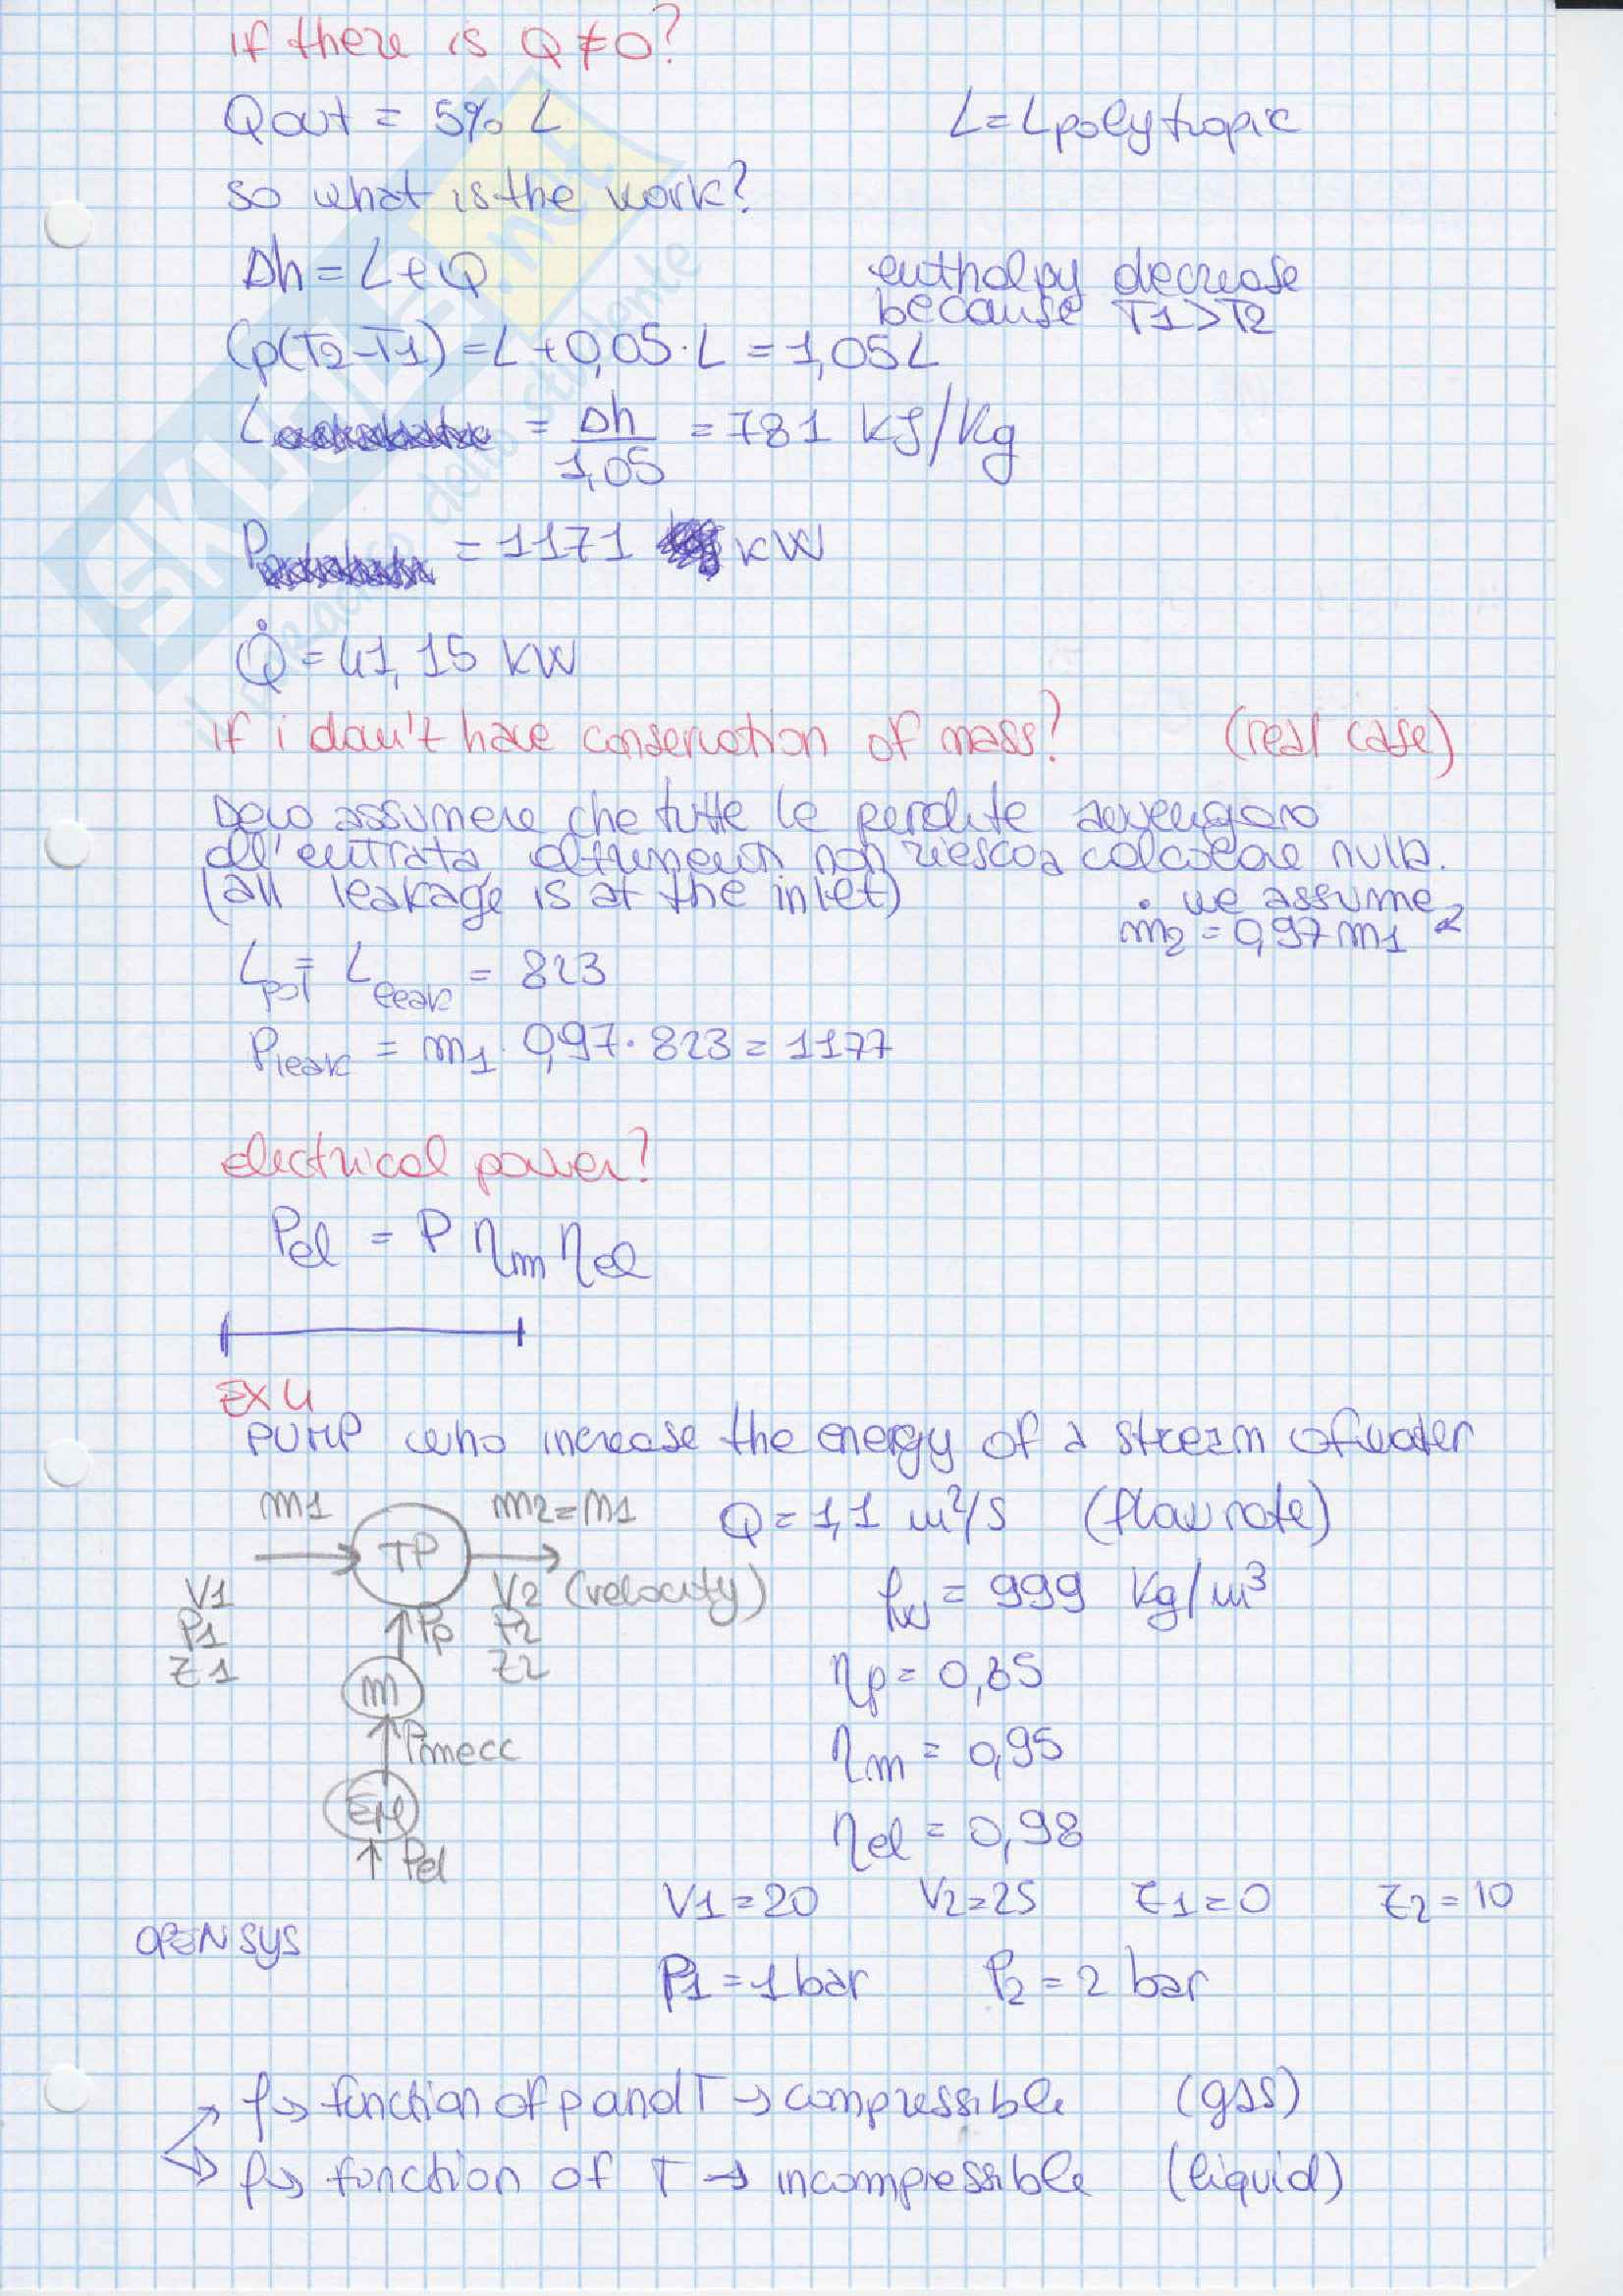 if there is Q ≠ 0?
Qout = 5% L L = Lpolytropic
so what is the work?
Δh = L + Q enthalpy decrease
because T1 > T2
Cp(T2-T1) = L + 0,05 · L = 1,05 L
L = Δh / 1,05 = 781 kJ/Kg
P = 1171 kW
Q̇ = 41,15 kW
if i don't have conservation of mass? (real case)
Devo assumere che tutte le perdite avvengano
all'entrata, altrimenti non riesco a calcolare nulla.
(all leakage is at the inlet) we assume
ṁ2 = 0,97 m1
Lpol = Lleak = 823
Pleak = m1 · 0,97 · 823 = 1177
electrical power?
Pel = P ηm ηel
EX 4
PUMP who increase the energy of a stream of water
m1 TP m2 = m1 Q = 1,1 m²/s (flow rate)
V1 V2 (velocity) ρw = 999 Kg/m³
P1 Pp P2
Z1 Z2 ηp = 0,85
m
Pmecc ηm = 0,95
EM ηel = 0,98
Pel
V1 = 20 V2 = 25 Z1 = 0 Z2 = 10
OPEN SYS
P1 = 1 bar P2 = 2 bar
ρ → function of p and T → compressible (gas)
ρ → function of T → incompressible (liquid)
SKUOLA.net